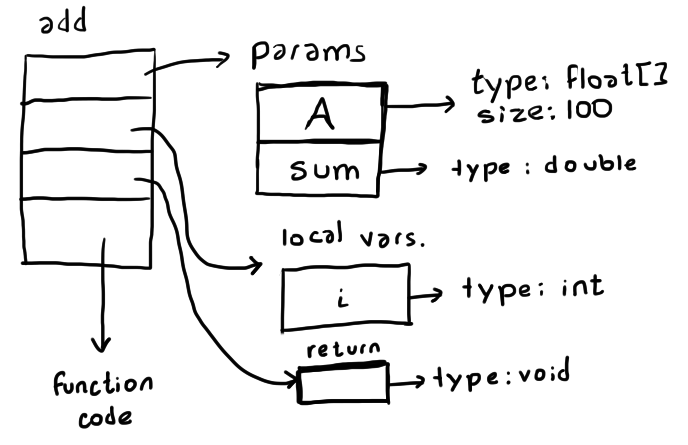 add
params
A
type: float[]
size: 100
sum
type : double
local vars.
i
type: int
return
type: void
function
code